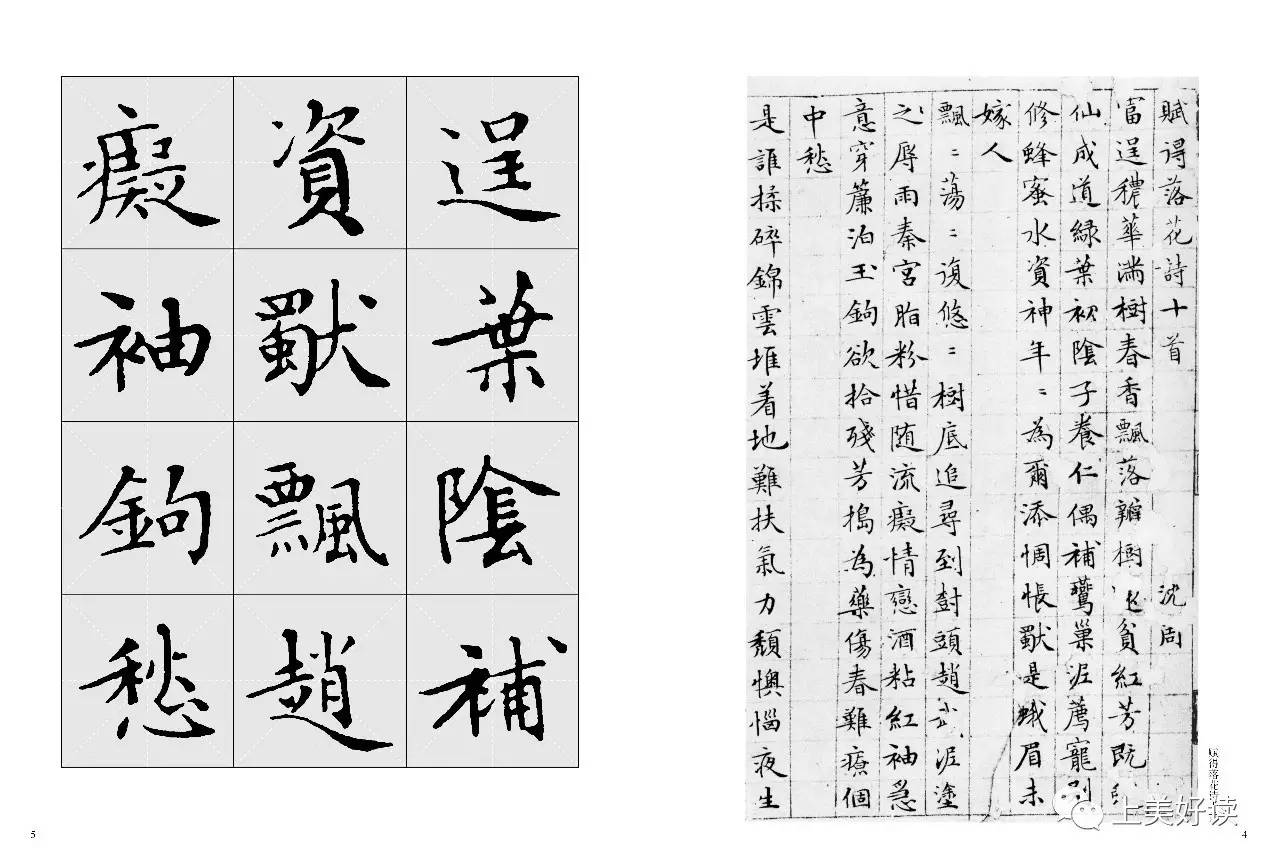 賦得落花詩十首 沈周
富逞穠華滿樹春香飄落瓣樹貧紅芳既
仙成道綠葉初陰子養仁偶補鶯巢泥薦寵別
修蜂蜜水資神年〻為爾添惆悵獸是蛾眉未
嫁人
飄〻蕩〻復悠〻樹底追尋到樹頭趙武泥塗
之辱雨秦宮脂粉惜随流癡情戀酒粘紅袖急
意穿簾泊玉鉤欲拾殘芳搗為藥傷春難療個
中愁
是誰揉碎錦雲堆着地難扶氣力頹懊惱夜生
賦得落花詩
上美好读
4
逞葉陰補
資獸飄趙
癡袖鉤愁
5